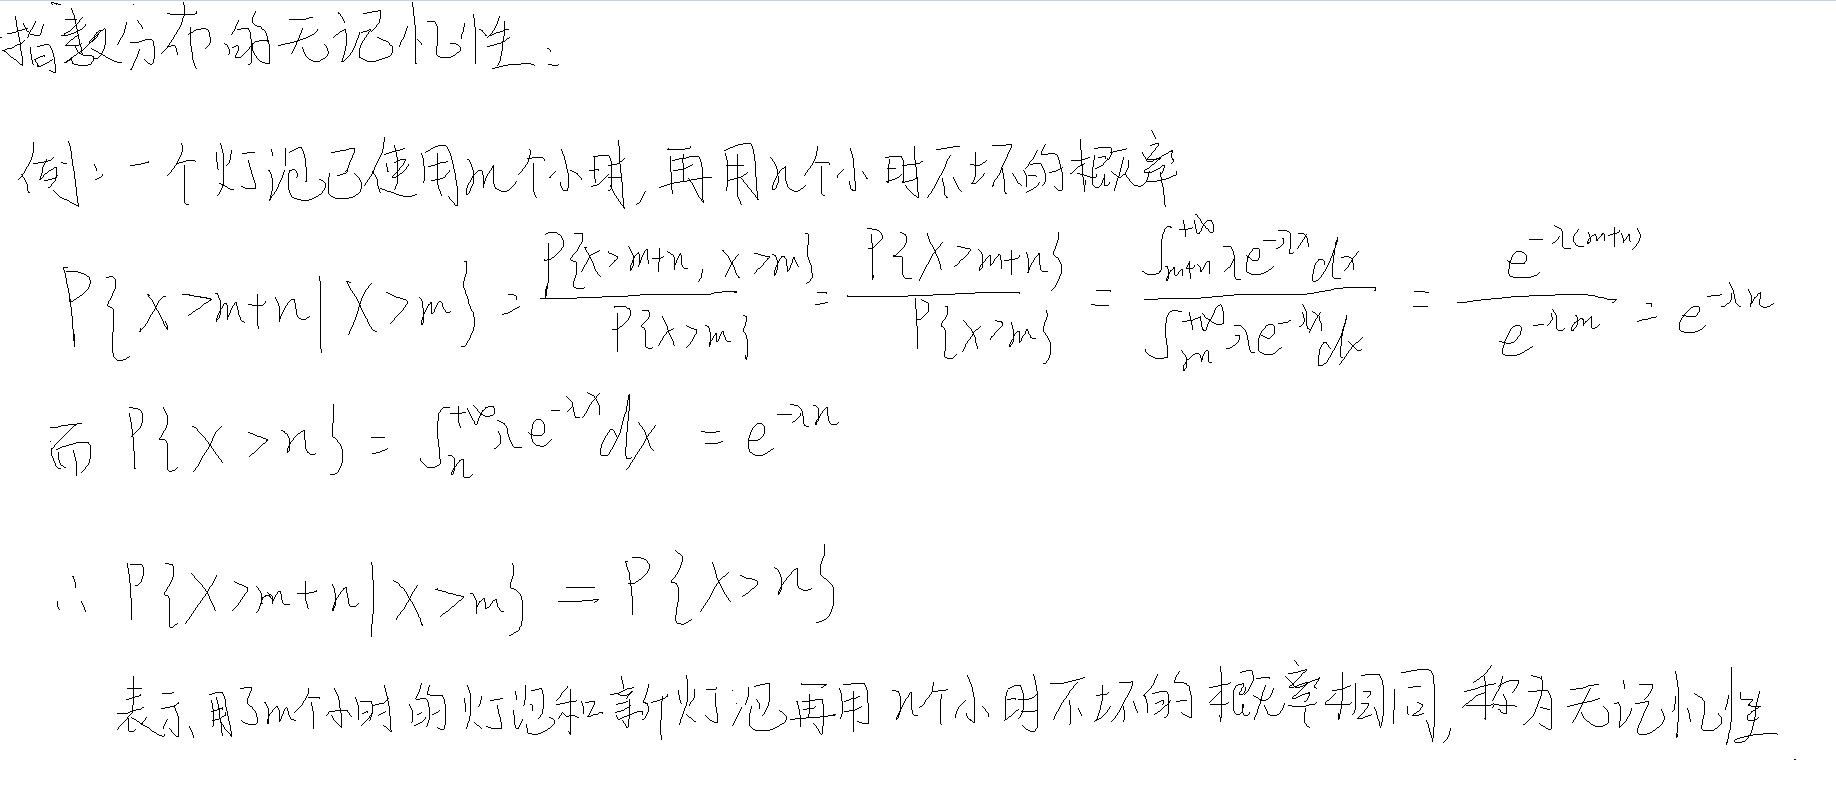 指数分布的无记忆性:
例:一个灯泡已使用m个小时,再用n个小时不坏的概率
P{X>m+n|X>m} = P{X>m+n, X>m} / P{X>m} = P{X>m+n} / P{X>m} = ∫_{m+n}^{+∞} λe^{-λx}dx / ∫_m^{+∞} λe^{-λx}dx = e^{-λ(m+n)} / e^{-λm} = e^{-λn}
而 P{X>n} = ∫_n^{+∞} λe^{-λx}dx = e^{-λn}
∴ P{X>m+n|X>m} = P{X>n}
表示用了m个小时的灯泡和新灯泡再用n个小时不坏的概率相同,称为无记忆性.